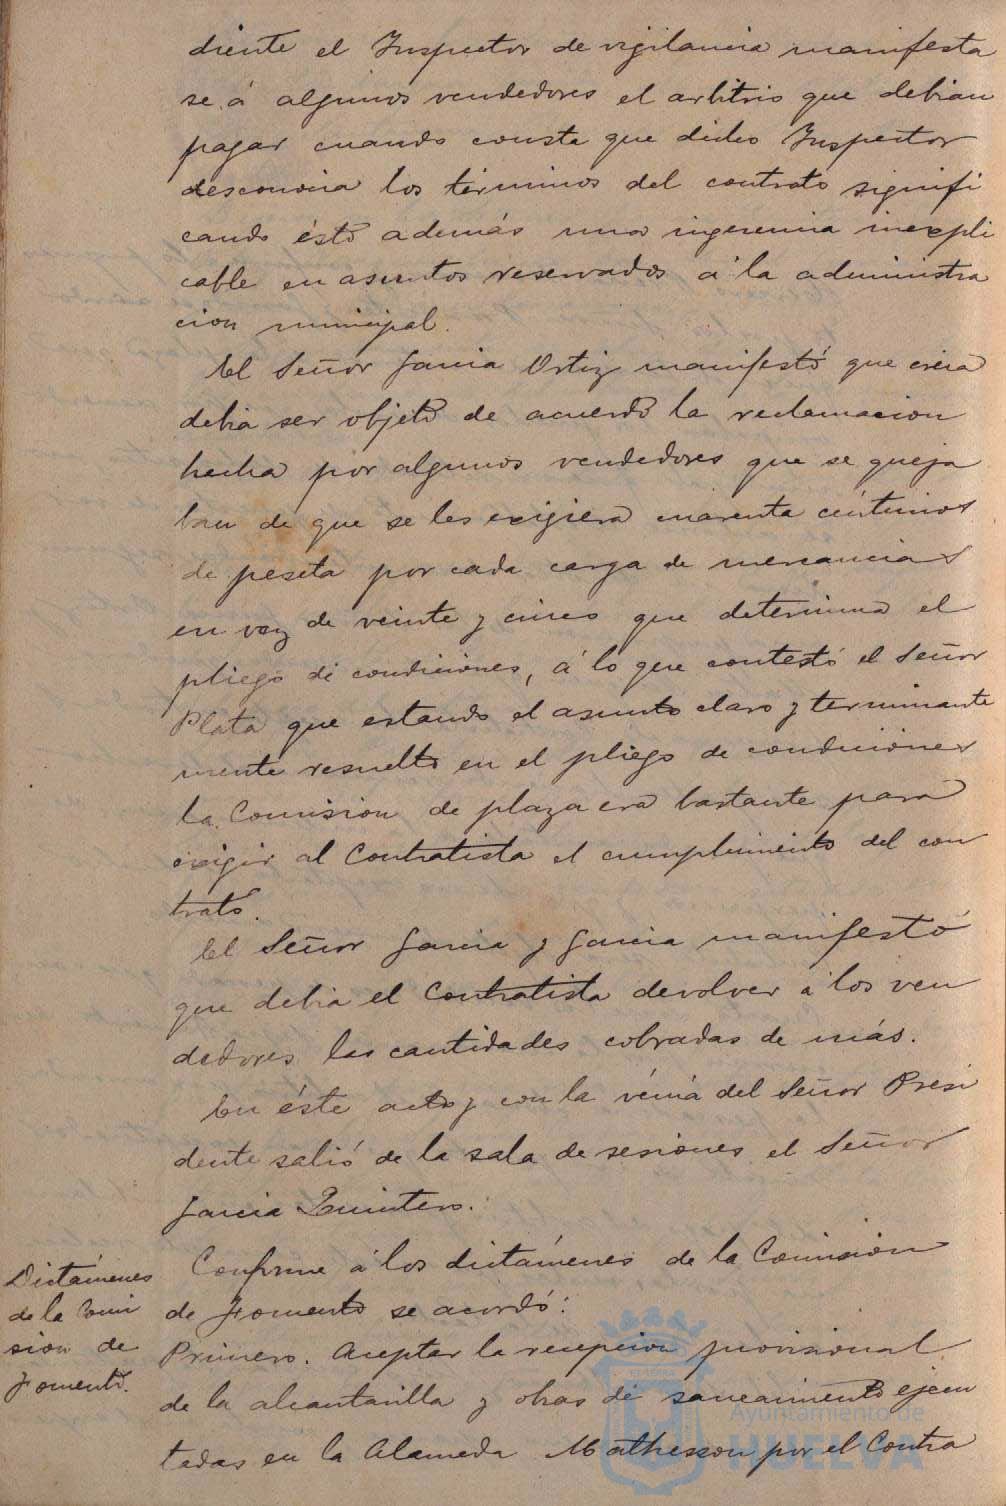 diente el Inspector de vigilancia manifesta
se á algunos vendedores el arbitrio que debian
pagar cuando consta que dicho Inspector
desconocia los términos del contrato signifi
cando ésto además una ingerencia inexpli
cable en asuntos reservados á la administra
cion municipal.
El Señor Garcia Ortiz manifestó que creia
debia ser objeto de acuerdo la reclamacion
hecha por algunos vendedores que se queja
ban de que se les exigiera cuarenta céntimos
de peseta por cada carga de mercancias
en vez de veinte y cinco que determina el
pliego de condiciones, á lo que contestó el Señor
Plata que estando el asunto claro y terminante
mente resuelto en el pliego de condiciones
la Comision de plaza era bastante para
exigir al Contratista el cumplimiento del con
trato.
El Señor Garcia y Garcia manifestó
que debia el Contratista devolver á los ven
dedores las cantidades cobradas de más.
En éste acto y con la vénia del Señor Presi
dente salió de la sala de sesiones el Señor
Garcia Quintero.
Dictámenes
de la Comi
sion de
Fomento.
Conforme á los dictámenes de la Comision
de Fomento se acordó:
Primero. Aceptar la recepcion provisional
de la alcantarilla y obras de saneamiento ejecu
tadas en la Alameda Mathesson por el Contra
Ayuntamiento de
HUELVA